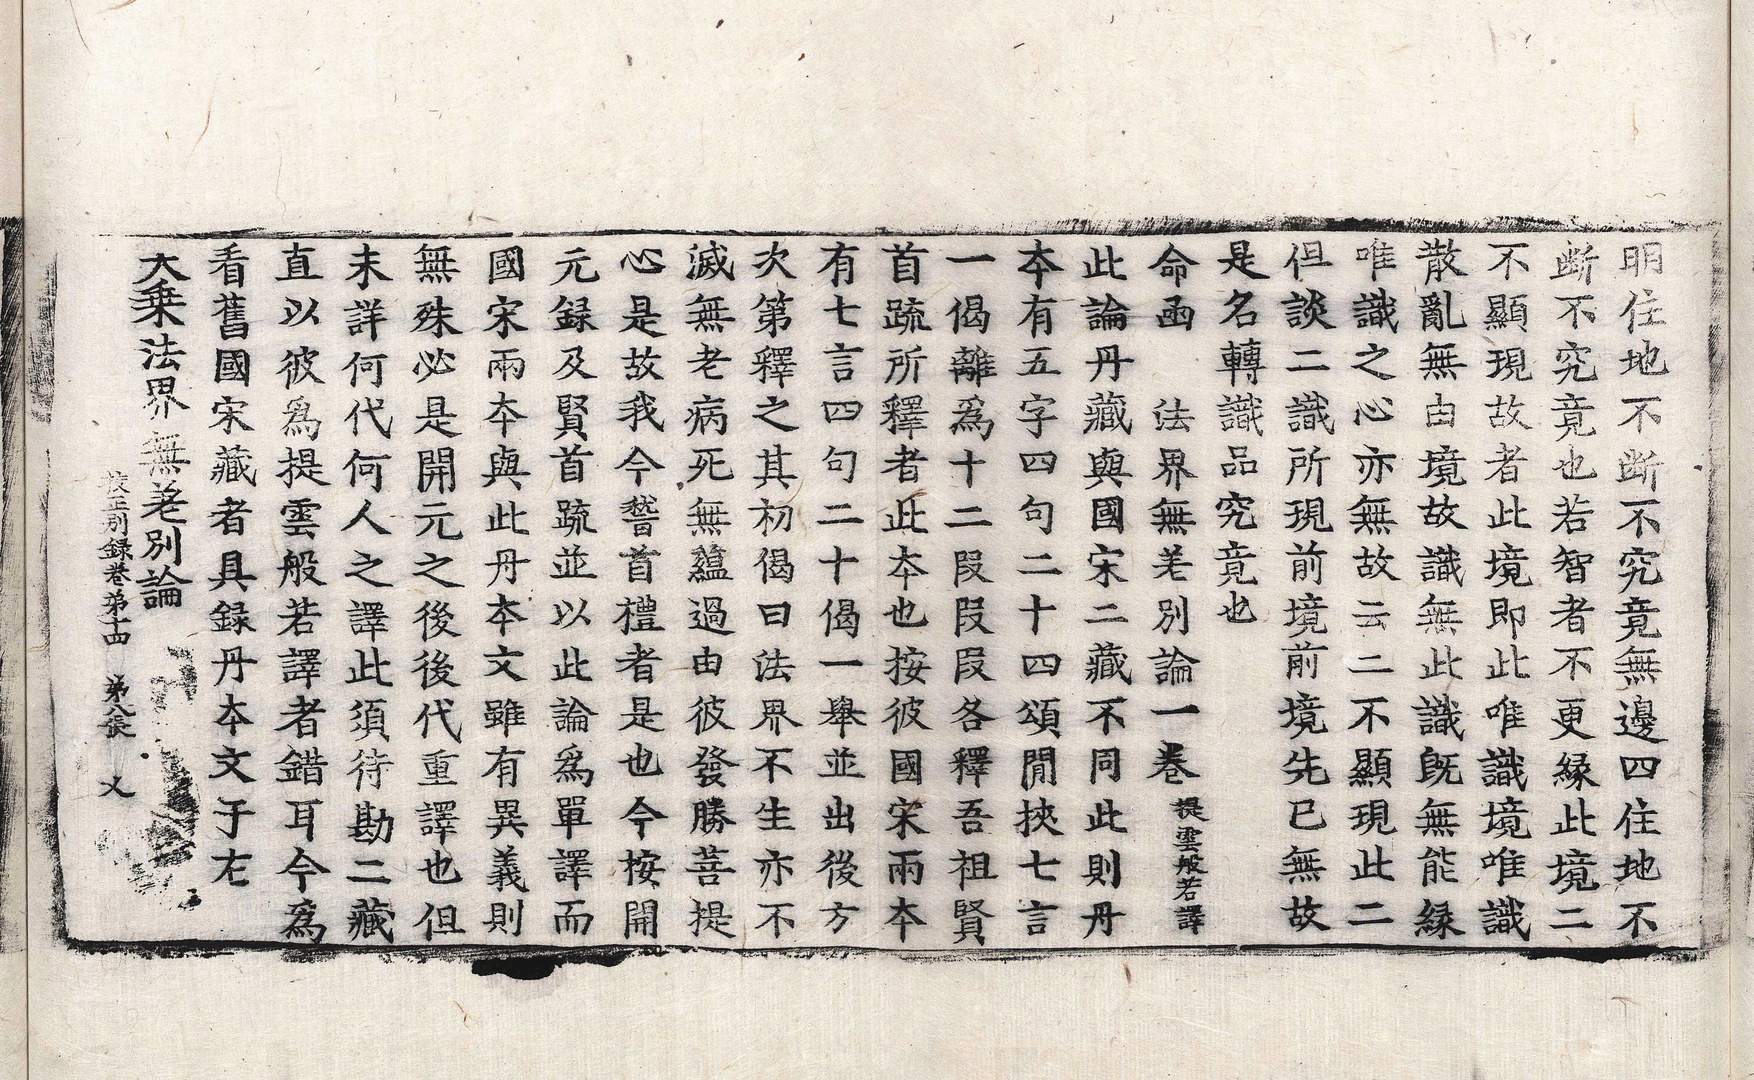 明住地不断不究竟無邊四住地不
断不究竟也若智者不更緣此境二
不顯現故者此境即此唯識境唯識
散亂無由境故識無此識旣無能緣
唯識之心亦無故云二不顯現此二
但談二識所現前境前境先已無故
是名轉識品究竟也
命函　法界無差別論一卷 提雲般若譯
此論丹藏與國宋二藏不同此則丹
本有五字四句二十四頌閒挾七言
一偈離爲十二段段各釋吾祖賢
首䟽所釋者此本也按彼國宋兩本
有七言四句二十偈一舉並出後方
次第釋之其初偈曰法界不生亦不
滅無老病死無蘊過由彼發勝菩提
心是故我今䭫首禮者是也今按開
元録及賢首䟽並以此論爲單譯而
國宋兩本與此丹本文雖有異義則
無殊必是開元之後後代重譯也但
未詳何代何人之譯此須待勘二藏
直以彼爲提雲般若譯者錯耳今爲
看舊國宋藏者具録丹本文于左
大乗法界無差別論
校正別録卷苐十四　苐八張　乂